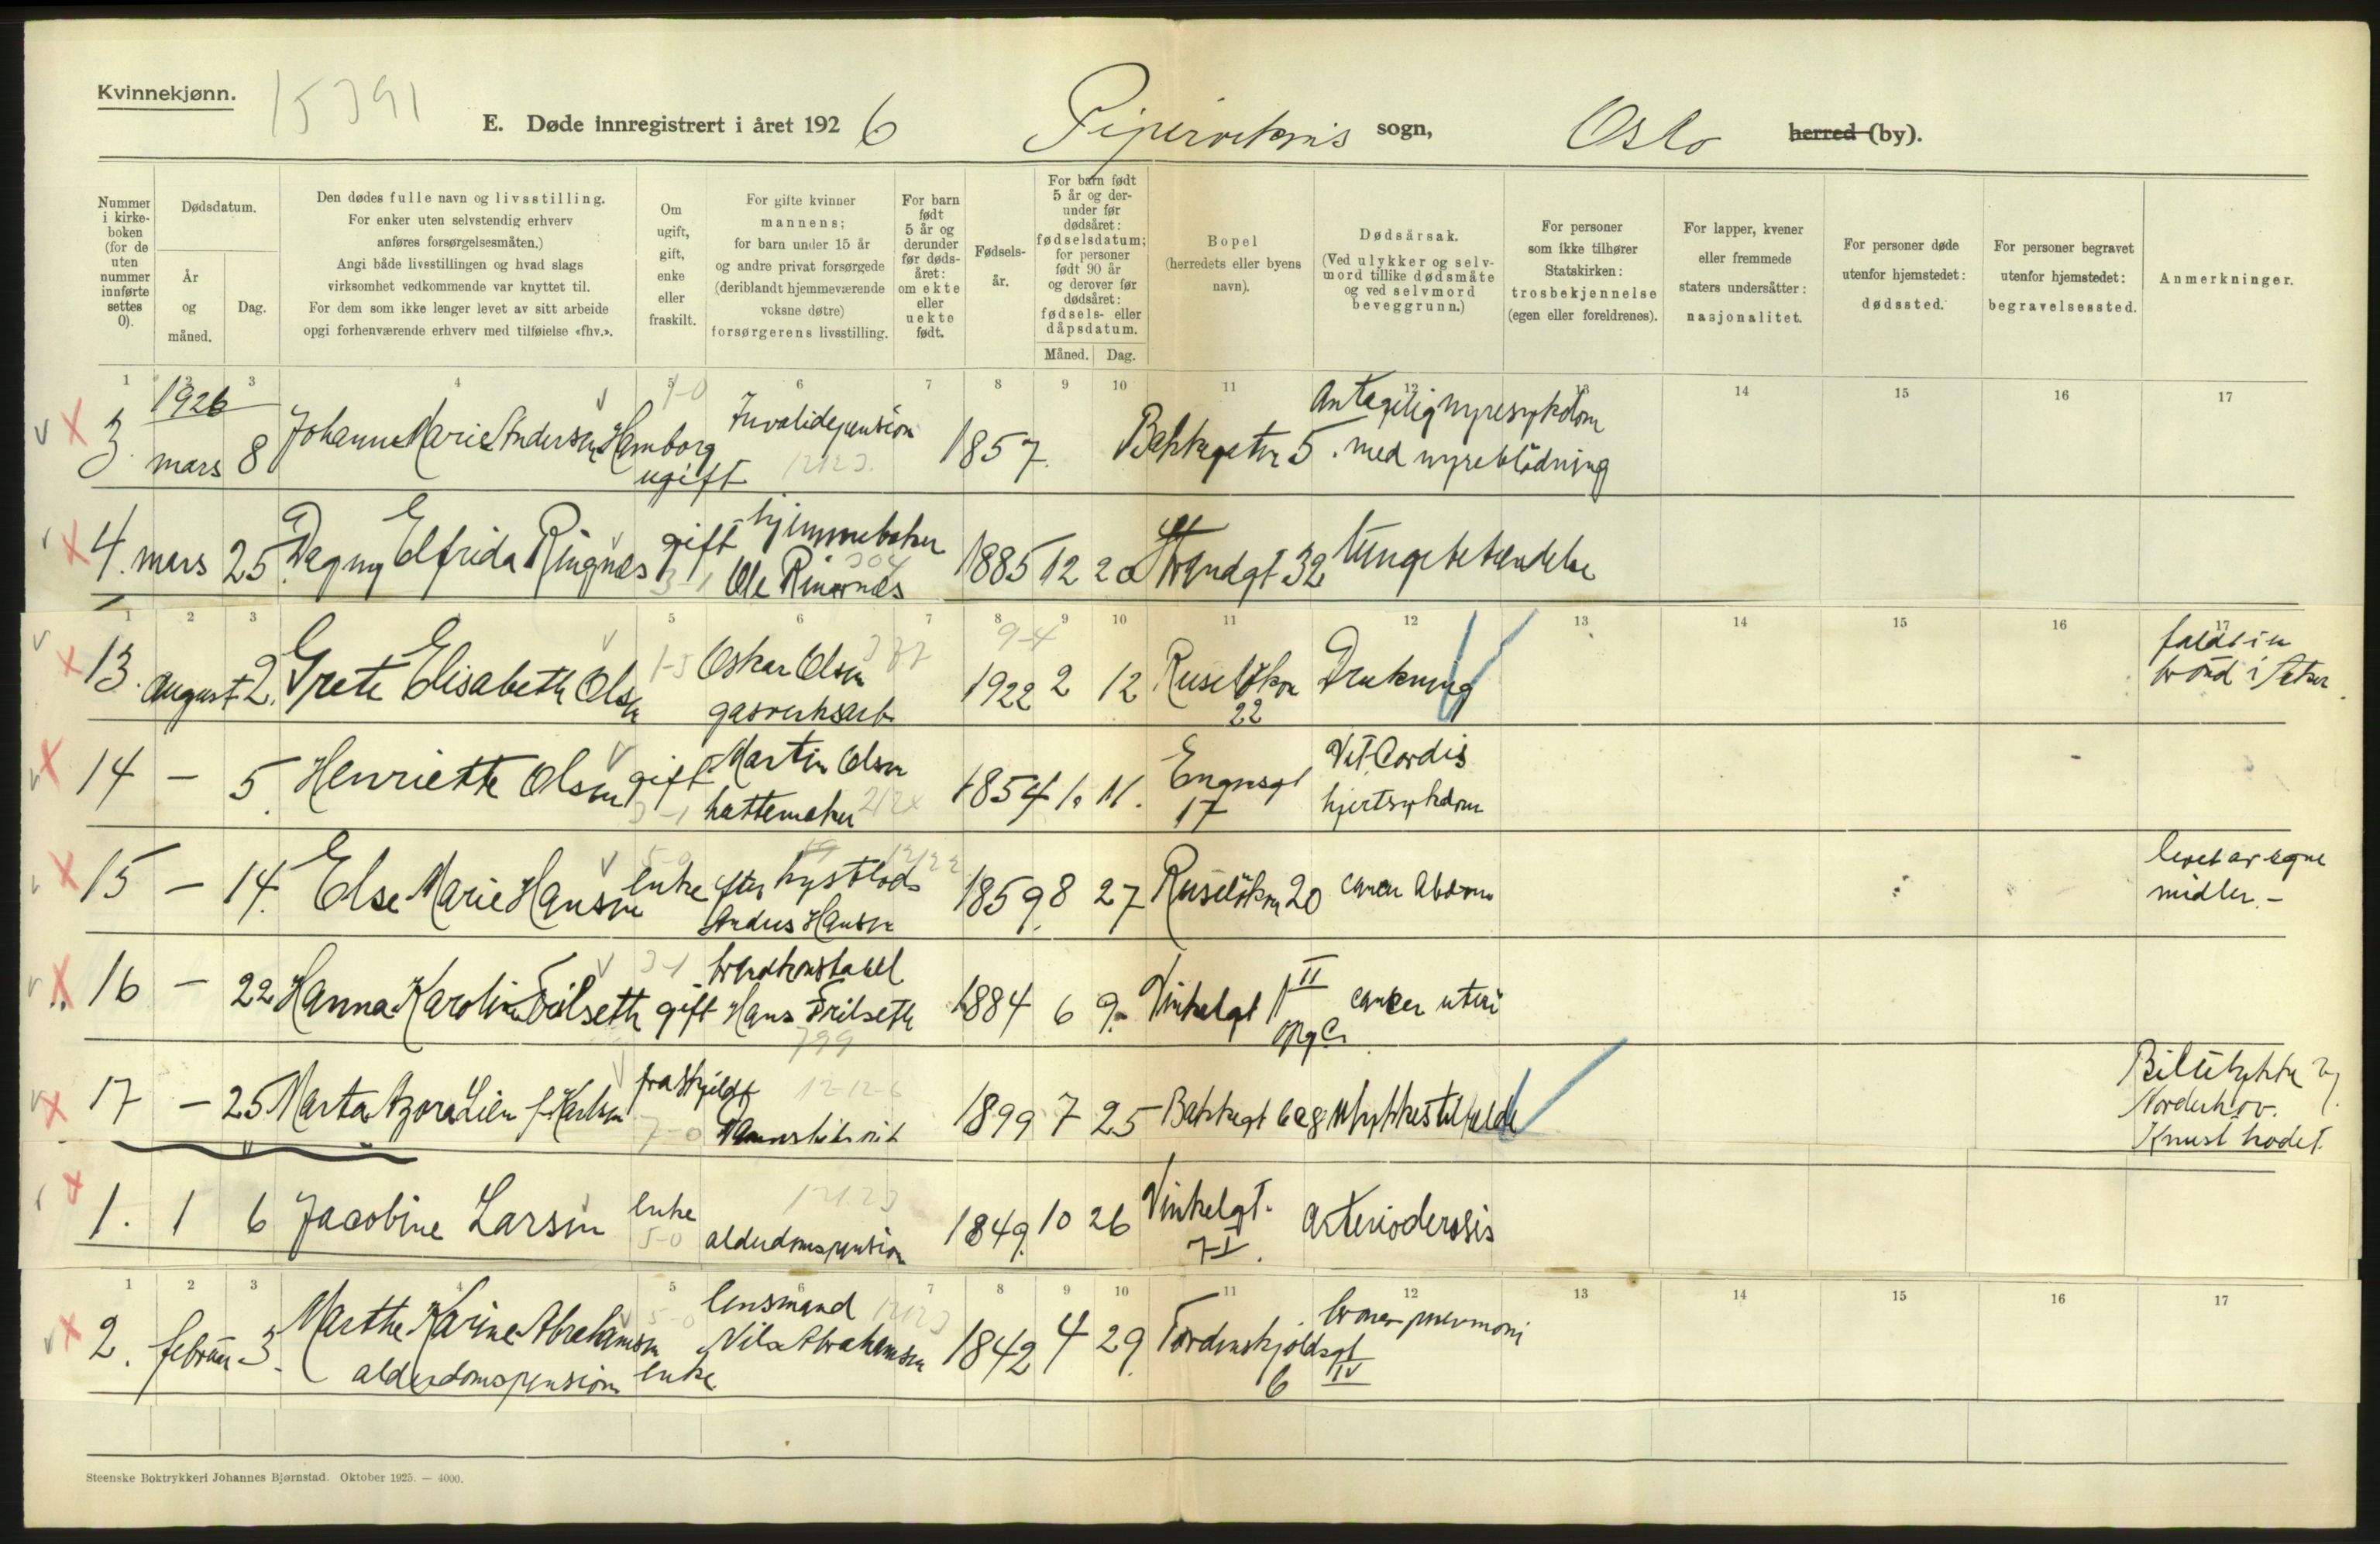 Kvinnekjønn.
15391
E. Døde innregistrert i året 1926 Pipervikens sogn, Oslo herred (by).
Nummer i kirkeboken (for de uten nummer innførte settes 0).
Dødsdatum.
År og måned.
Dag.
Den dødes fulle navn og livsstilling.
For enker uten selvstendig erhverv anføres forsørgelsesmåten.)
Angi både livsstillingen og hvad slags virksomhet vedkommende var knyttet til.
For dem som ikke lenger levet av sitt arbeide opgi forhenværende erhverv med tilføielse «fhv.».
Om ugift, gift, enke eller fraskilt.
For gifte kvinner mannens; for barn under 15 år og andre privat forsørgede (deriblandt hjemmeværende voksne døtre) forsørgerens livsstilling.
For barn født 5 år og derunder før dødsåret: om ekte eller uekte født.
Fødselsår.
For barn født 5 år og derunder før dødsåret: fødselsdatum; for personer født 90 år og derover før dødsåret: fødsels- eller dåpsdatum.
Måned. Dag.
Bopel (herredets eller byens navn).
Dødsårsak.
(Ved ulykker og selvmord tillike dødsmåte og ved selvmord beveggrunn.)
For personer som ikke tilhører Statskirken: trosbekjennelse (egen eller foreldrenes).
For lapper, kvener eller fremmede staters undersåtter: nasjonalitet.
For personer døde utenfor hjemstedet: dødssted.
For personer begravet utenfor hjemstedet: begravelsessted.
Anmerkninger.
1 2 3 4 5 6 7 8 9 10 11 12 13 14 15 16 17
1926
3. mars 8 Johanne Marie Andersen Hamborg ugift Invalidepension 1857. Bakkegaten 5. Antagelig nyresykdom med nyreblödning
4. mars 25. Dagny Elfrida Ringnes gift hjemmebaker Ole Ringnes 1885 12 20 Strandgt 32 lungebetændelse
1 2 3 4 5 6 7 8 9 10 11 12 13 14 15 16 17
13. august 2. Grete Elisabeth Olsen 1-5 Oskar Olsen gasverksarb 9-4 1922 2 12 Ruseløkvn 22 Drukning faldt i en brönd i
14 – 5. Henriette Olsen gift Martin Olsen hattemaker 1854 1. 11. Engensgt 17 Vit. Cordis hjertsykdom
15 – 14. Else Marie Hansen enke efter kystlods Anders Hansen 1859. 8 27 Ruseløkvn 20 cancer Abdom levet av egne midler. –
16 – 22 Hanna Karoline Frilseth gift 3-1 brandkonstabel Hans Frilseth 799 1884 6 9. Vinkelgt 1 II opg C. cancer uteri
17 – 25 Marta Azora Lien f. Karlsen fraskjeldt 7-0 12-12-6 1899 7 25 Bakkegt 6 og 8 Ulykkestilfælde Bilulykke Norderhov. Knust hodet.
1. 1 6 Jacobine Larsen enke 5-0 alderdomspension 1849. 10 26 Vinkelgt. 7 I. arterioderosis
1 2 3 4 5 6 7 8 9 10 11 12 13 14 15 16 17
2. februar 3. Marthe Karine Abrahamsen alderdomspension enke lensmand Nils Abrahamsen 1842 4 29. Tordenskjoldsgt 6 IV broncepneumoni
Steenske Boktrykkeri Johannes Bjørnstad. Oktober 1925. — 4000.